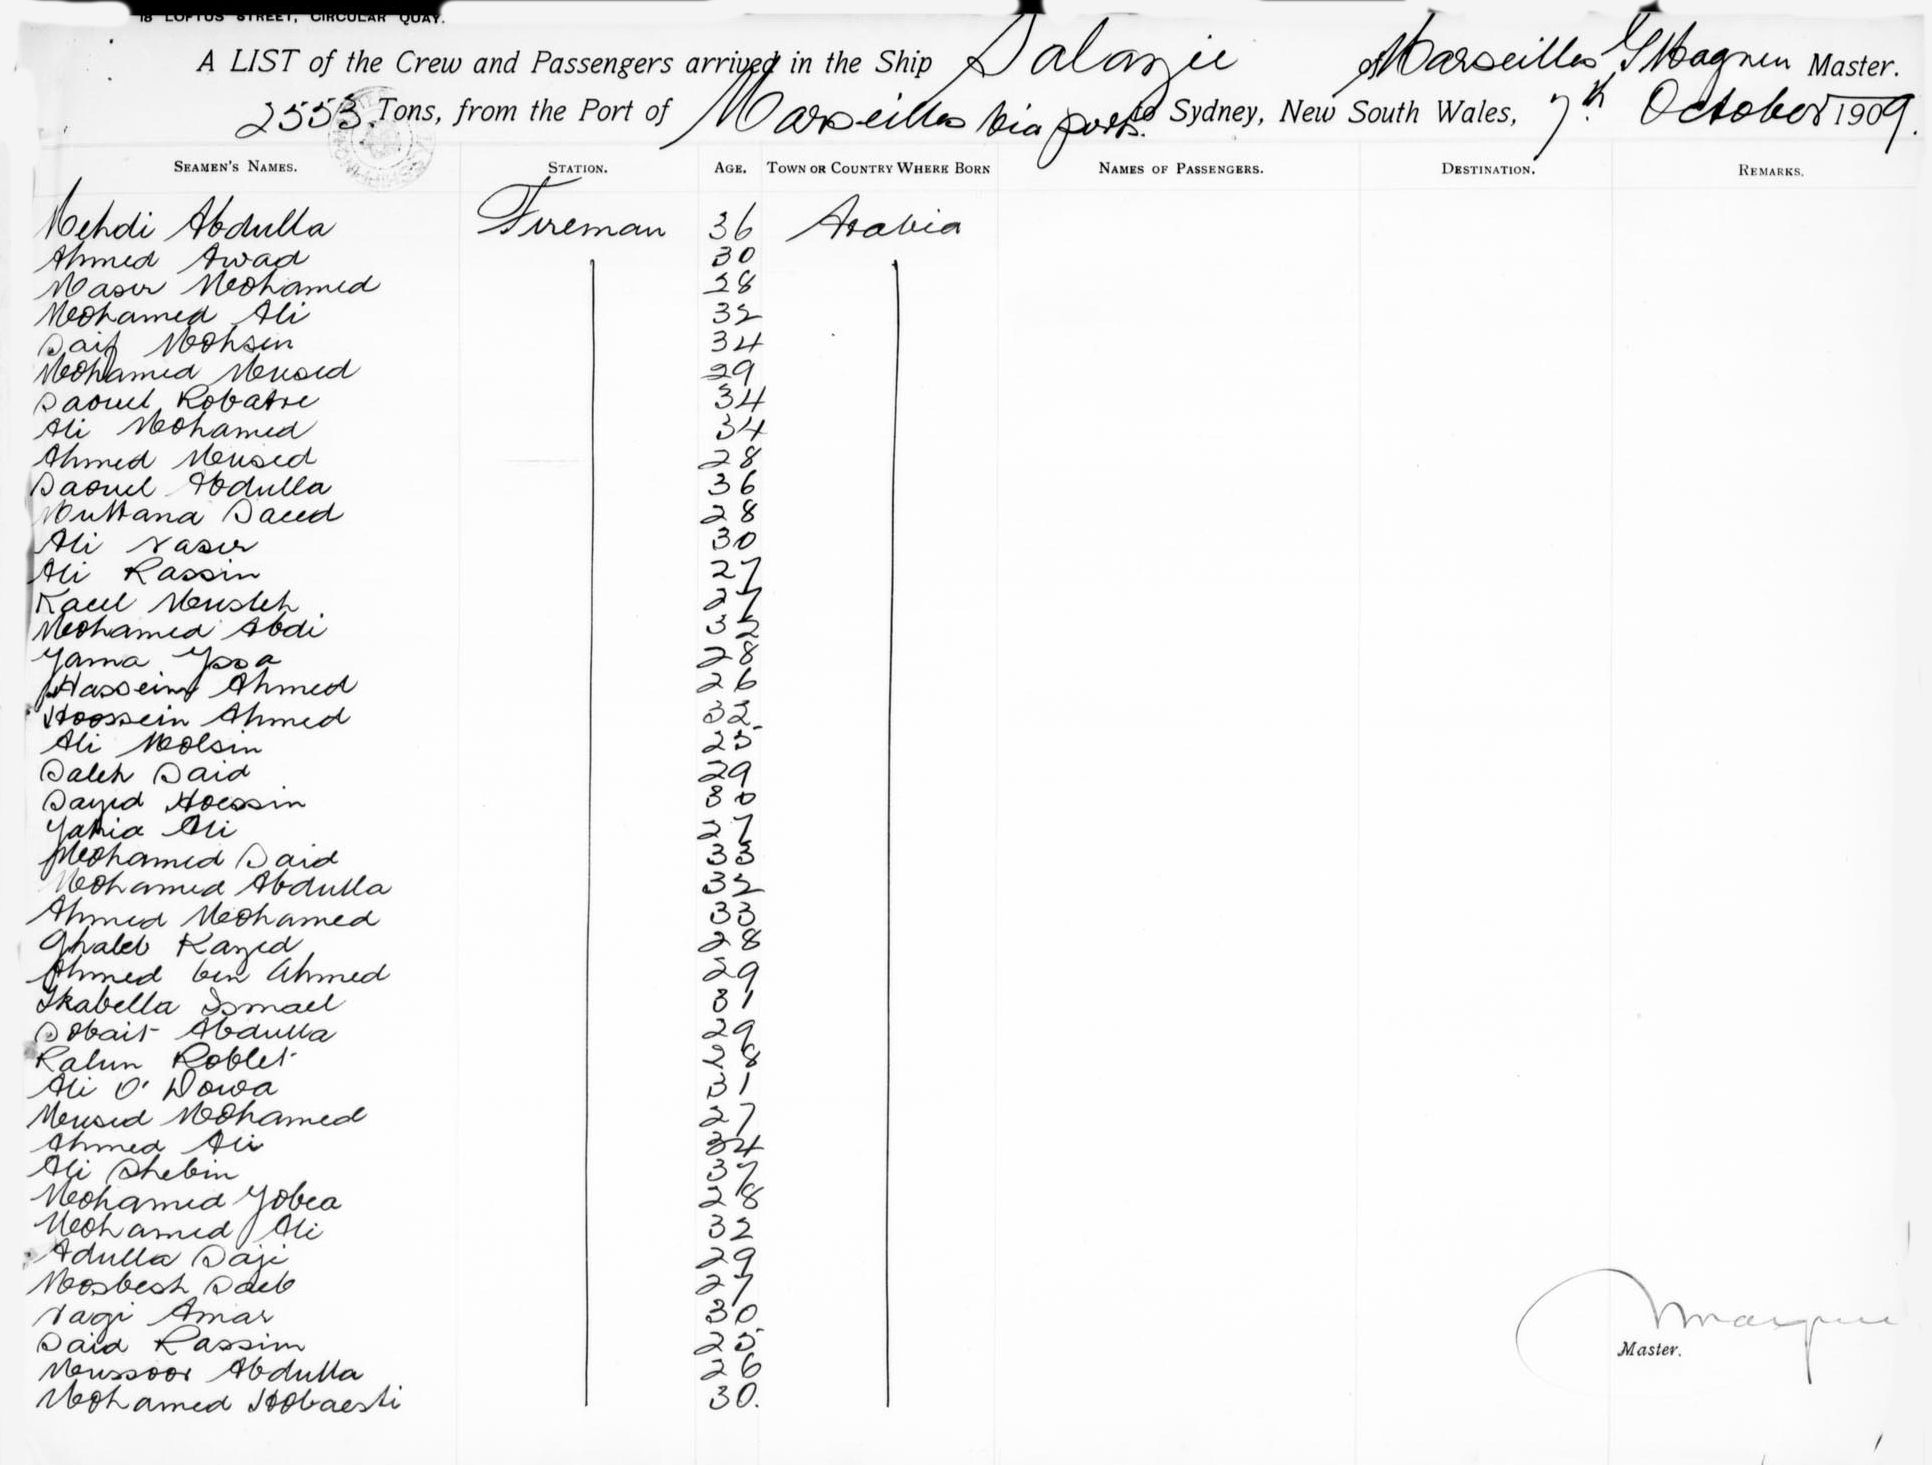 18 LOFTUS STREET, CIRCULAR QUAY.
A LIST of the Crew and Passengers arrived in the Ship Salazie of Marseilles Master.
2553 Tons, from the Port of Marseilles via ports to Sydney, New South Wales, 7th October 1909.
SEAMEN'S NAMES. STATION. AGE. TOWN OR COUNTRY WHERE BORN NAMES OF PASSENGERS. DESTINATION. REMARKS.
Mehdi Abdulla Fireman 36 Arabia
Ahmed Awad 30
Naser Mohamed 28
Mohamed Ali 32
Saif Mohsin 34
Mohamed Mersed 29
Daoud Robatre 34
Ali Mohamed 34
Ahmed Mersed 28
Daoud Abdulla 36
Muttana Saeed 28
Ali Naser 30
Ali Kassin 27
Kaul Musleh 27
Mohamed Abdi 32
Yama Yssa 28
Hassein Ahmed 26
Hoossein Ahmed 32
Ali Molsin 25
Saleh Said 29
Sayed Hoessin 30
Yahia Ali 27
Mohamed Said 33
Mohamed Abdulla 32
Ahmed Mohamed 33
Ghaleb Kayed 28
Ahmed ben Ahmed 29
Skabella Ismael 31
Sobait Abdulla 29
Kalun Roblet 28
Ali O' Dowa 31
Mersed Mohamed 27
Ahmed Ali 34
Ali Shebin 37
Mohamed Yobea 28
Mohamed Ali 32
Adulla Saji 29
Mosbesh Saeb 27
Nagi Amar 30
Said Kassim 25
Mussoor Abdulla 26
Mohamed Hobaesti 30.
Master.